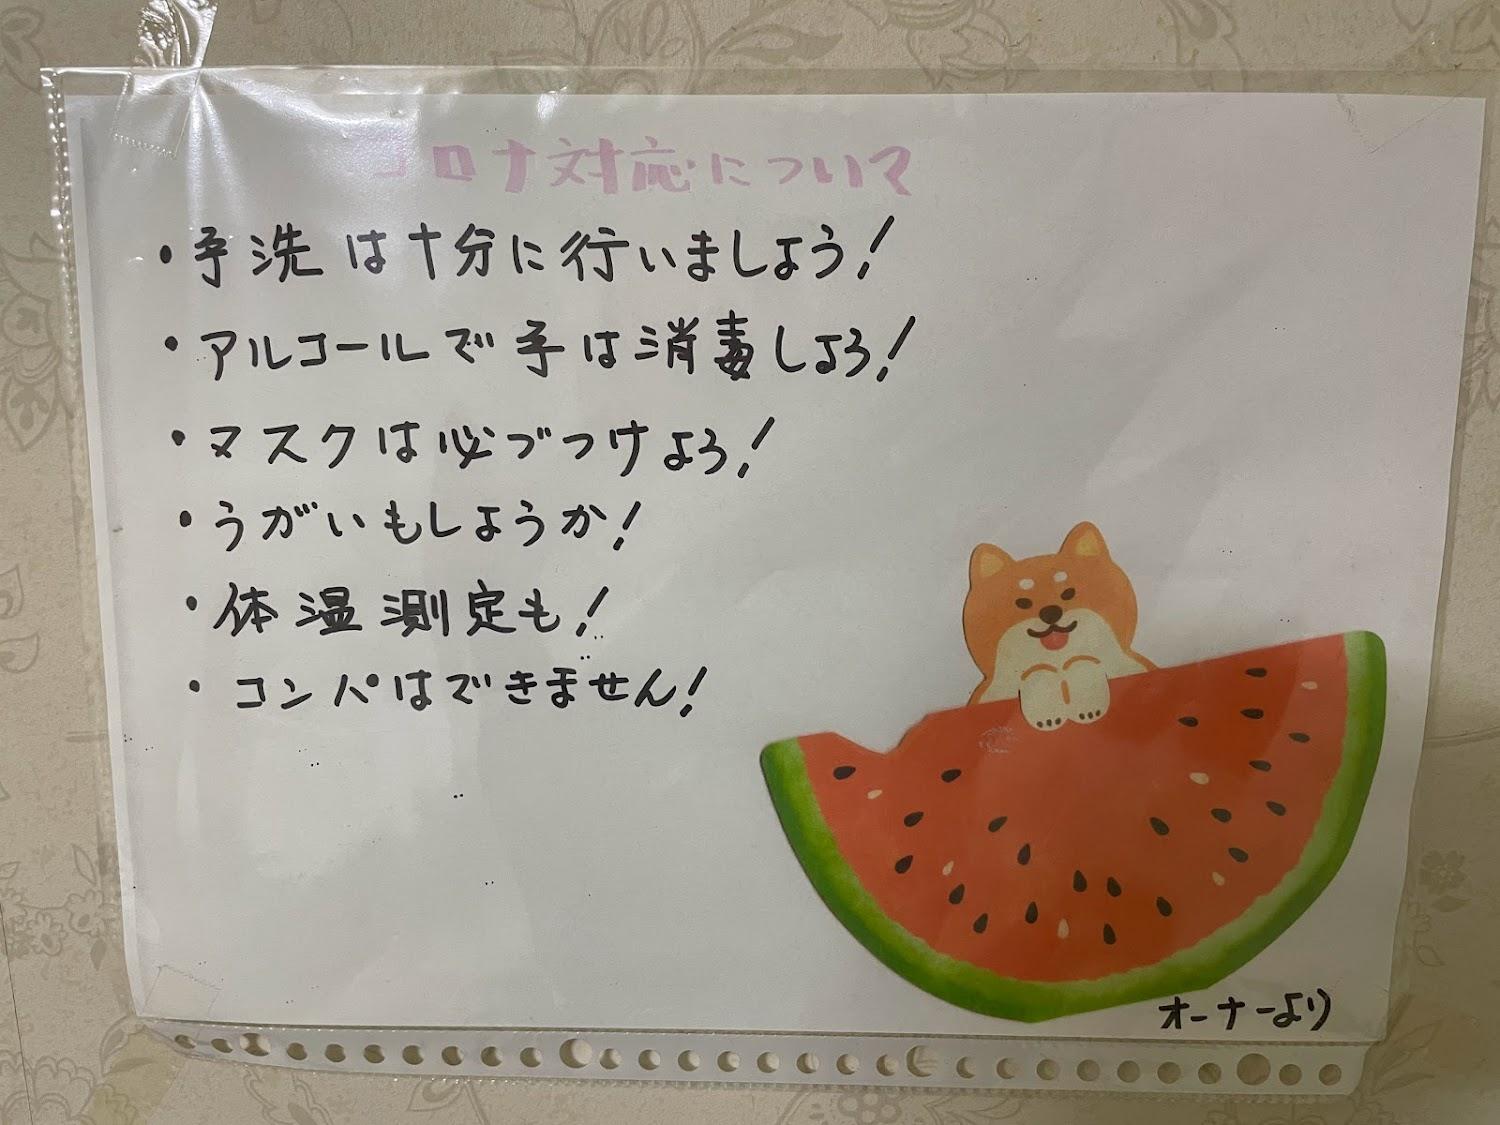 コロナ対応について
・手洗は十分に行いましょう!
・アルコールで手は消毒しよろ!
・マスクは必づつけよろ!
・うがいもしようか!
・体温測定も!
・コンパはできません!
オーナーより